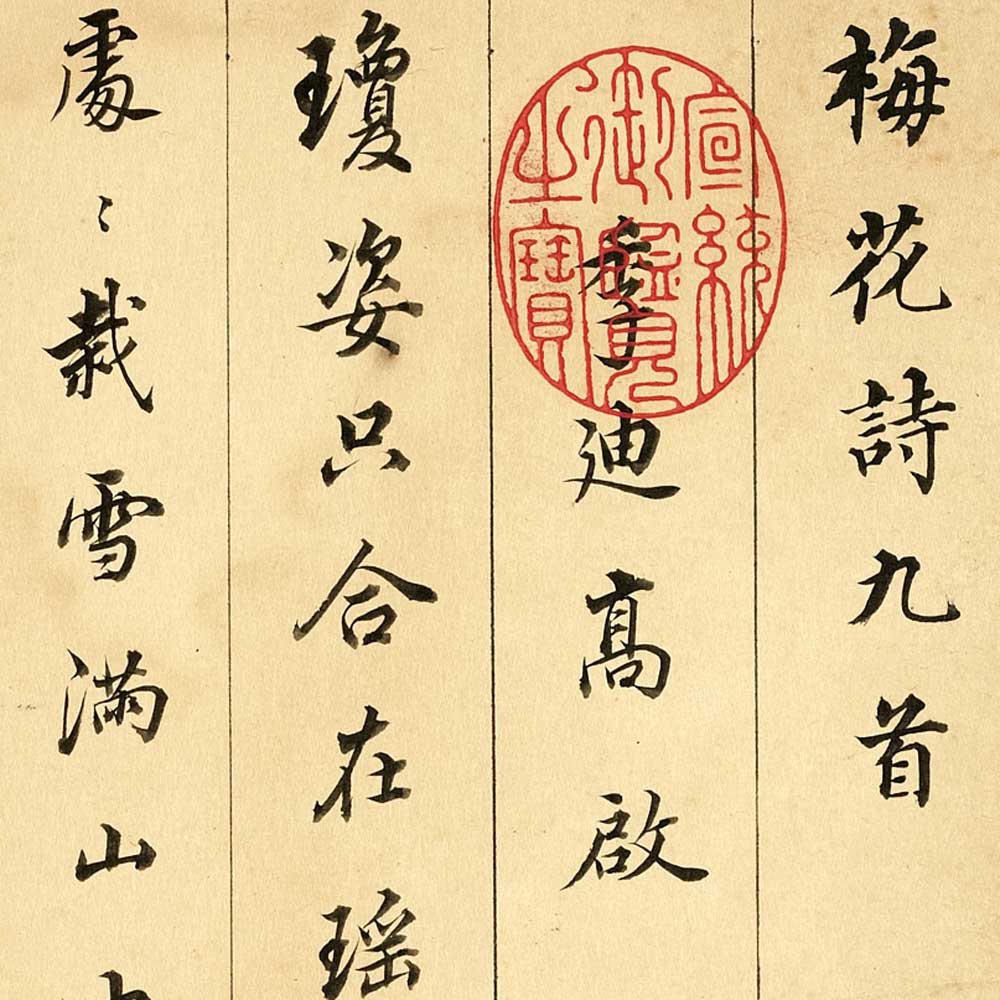 梅花詩九首
季迪高啟
宣統御覽之寶
瓊姿只合在瑶
處〻栽雪滿山